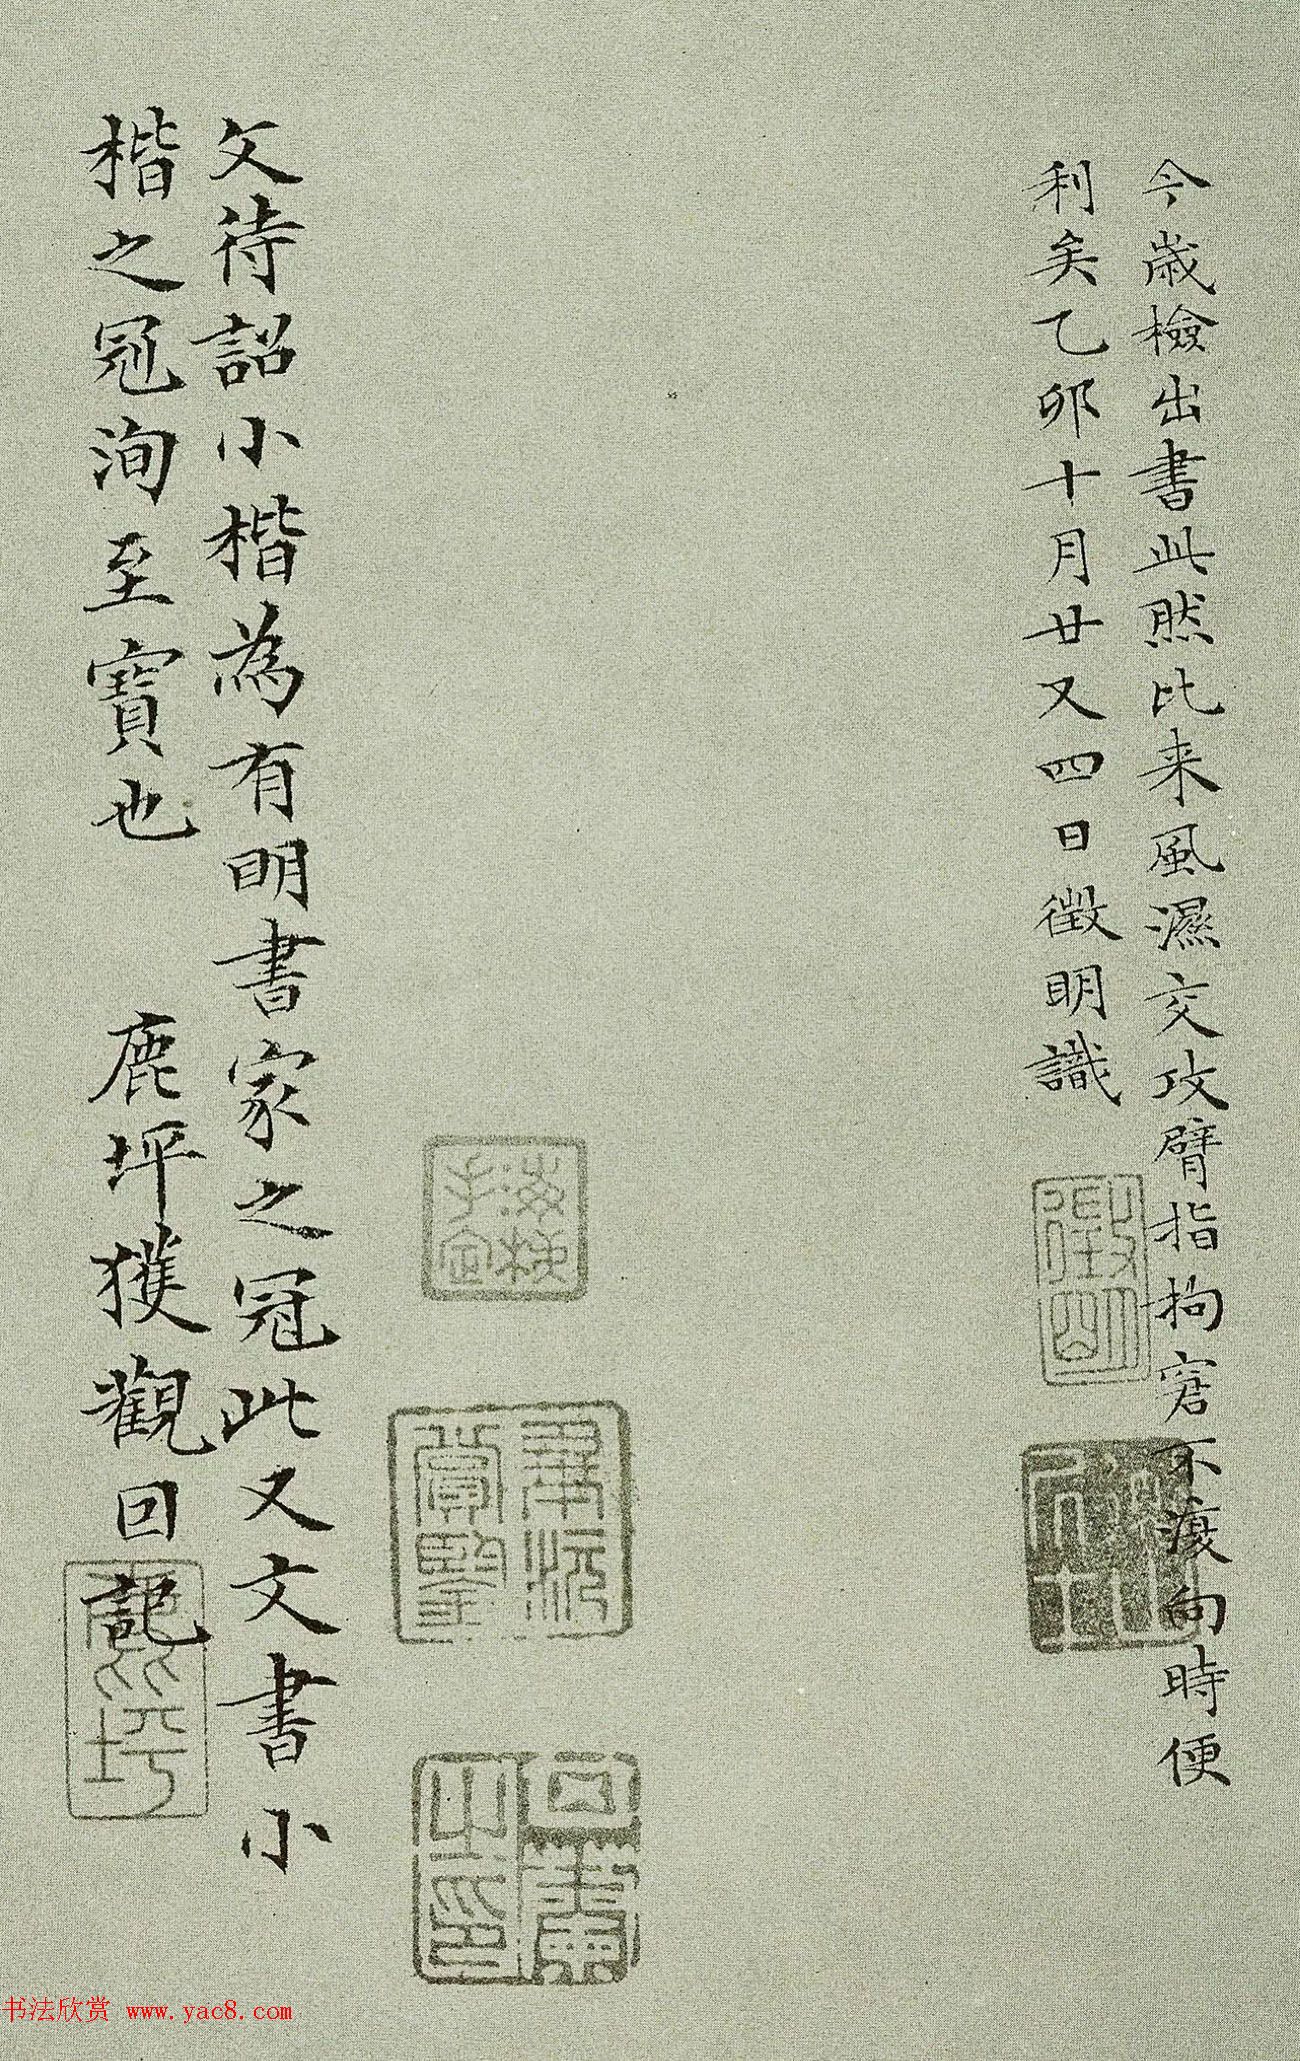 今歳檢出書此然比来風濕交攻臂指拘窘不復向時便
利矣乙卯十月廿又四日徵明識
徵明
居士
文待詔小楷為有明書家之冠此又文書小
楷之冠洵至寶也 鹿坪獲觀回記
鹿坪
之印
书法欣赏 www.yac8.com